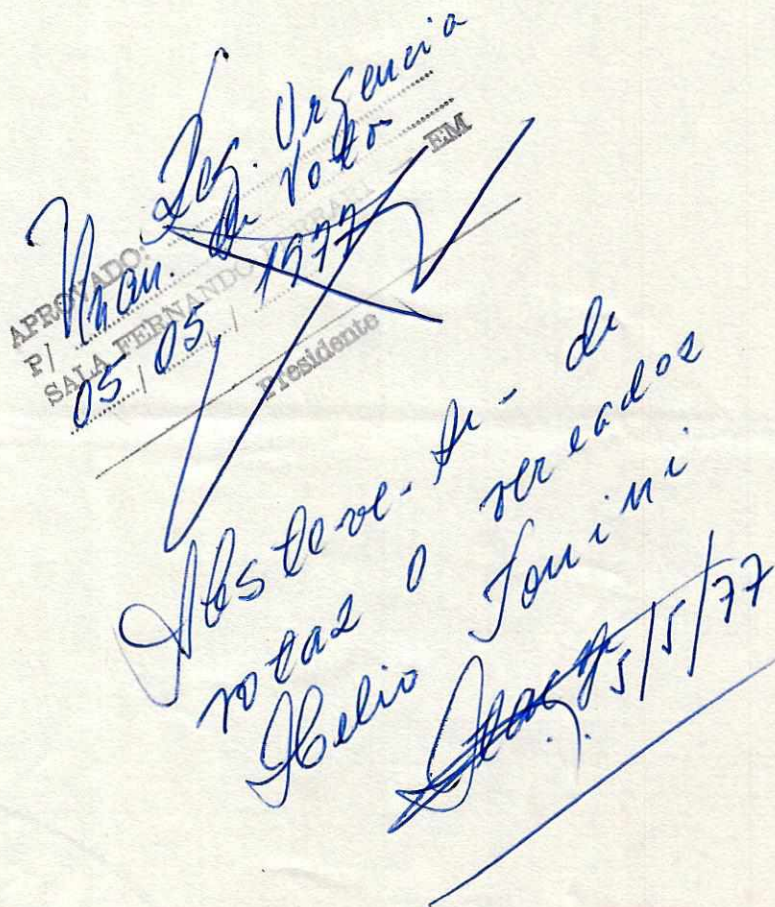 Reg. Urgencia
APROVADO:
P/ Unan. de Votos
SALA FERNANDO FERRARI EM
05 / 05 / 1977
Presidente
Absteve-se de
votar o vereador
Helio Tonini
5/5/77